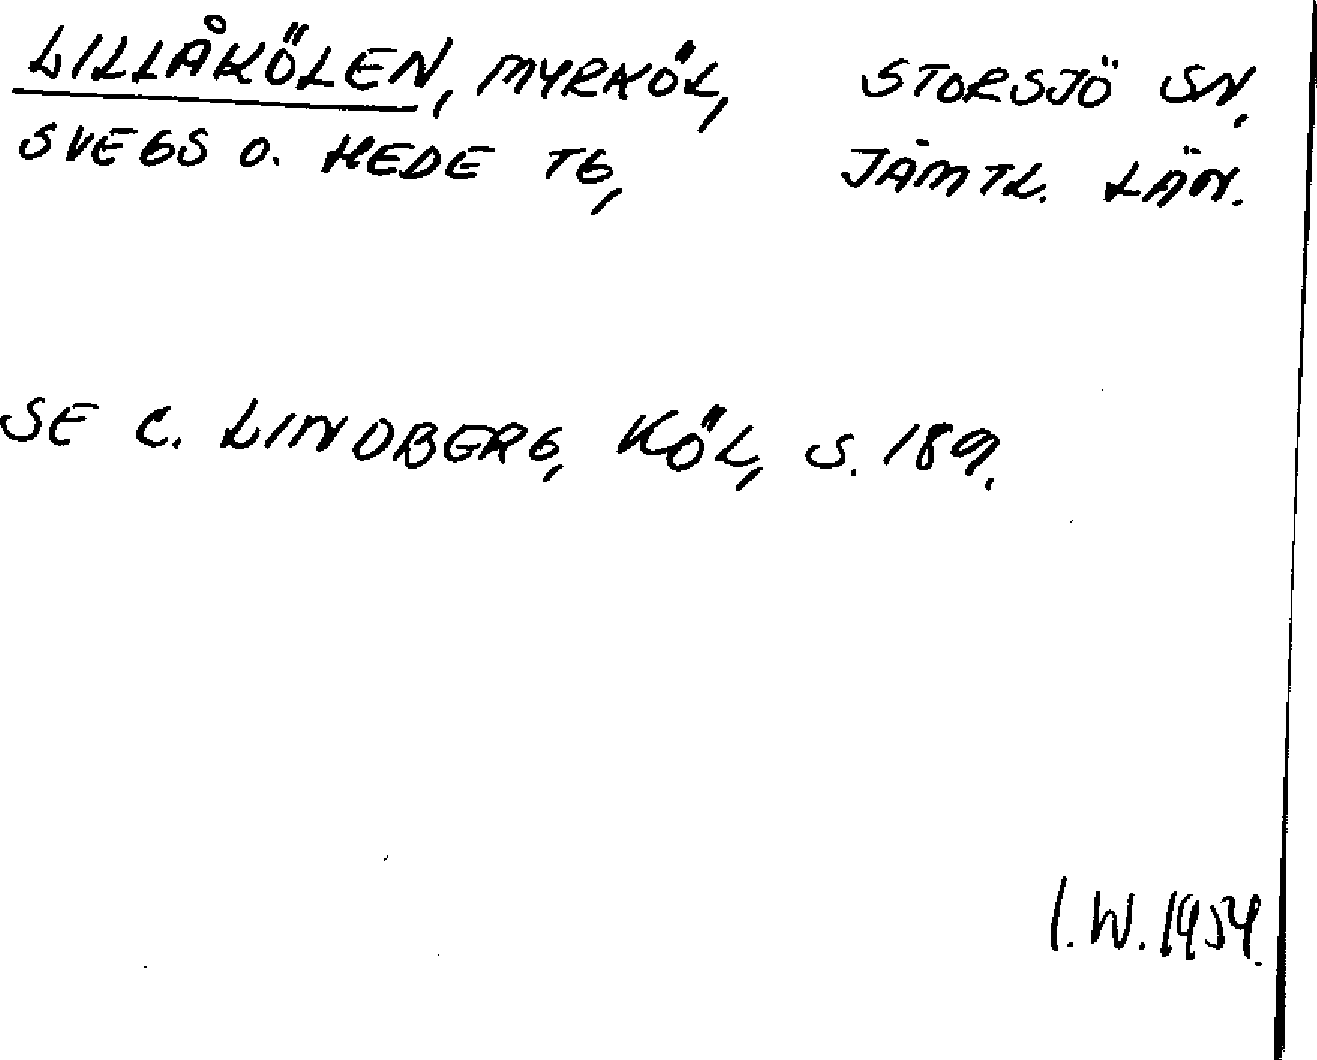 LILLÅKÖLEN, MYRKÖL, STORSJÖ SN,
SVEGS O. HEDE TG, JÄMTL. LÄN.
SE C. LINDBERG, KÖL, S. 189.
I.W. 1954.